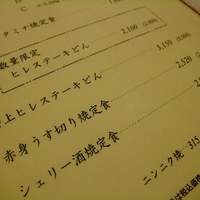 C
タミナ焼定食
数量限定
ヒレステーキどん 2,100
上ヒレステーキどん 3,150
赤身うす切り焼定食 2,520
シェリー酒焼定食
ニンニク焼…315
は税込価格